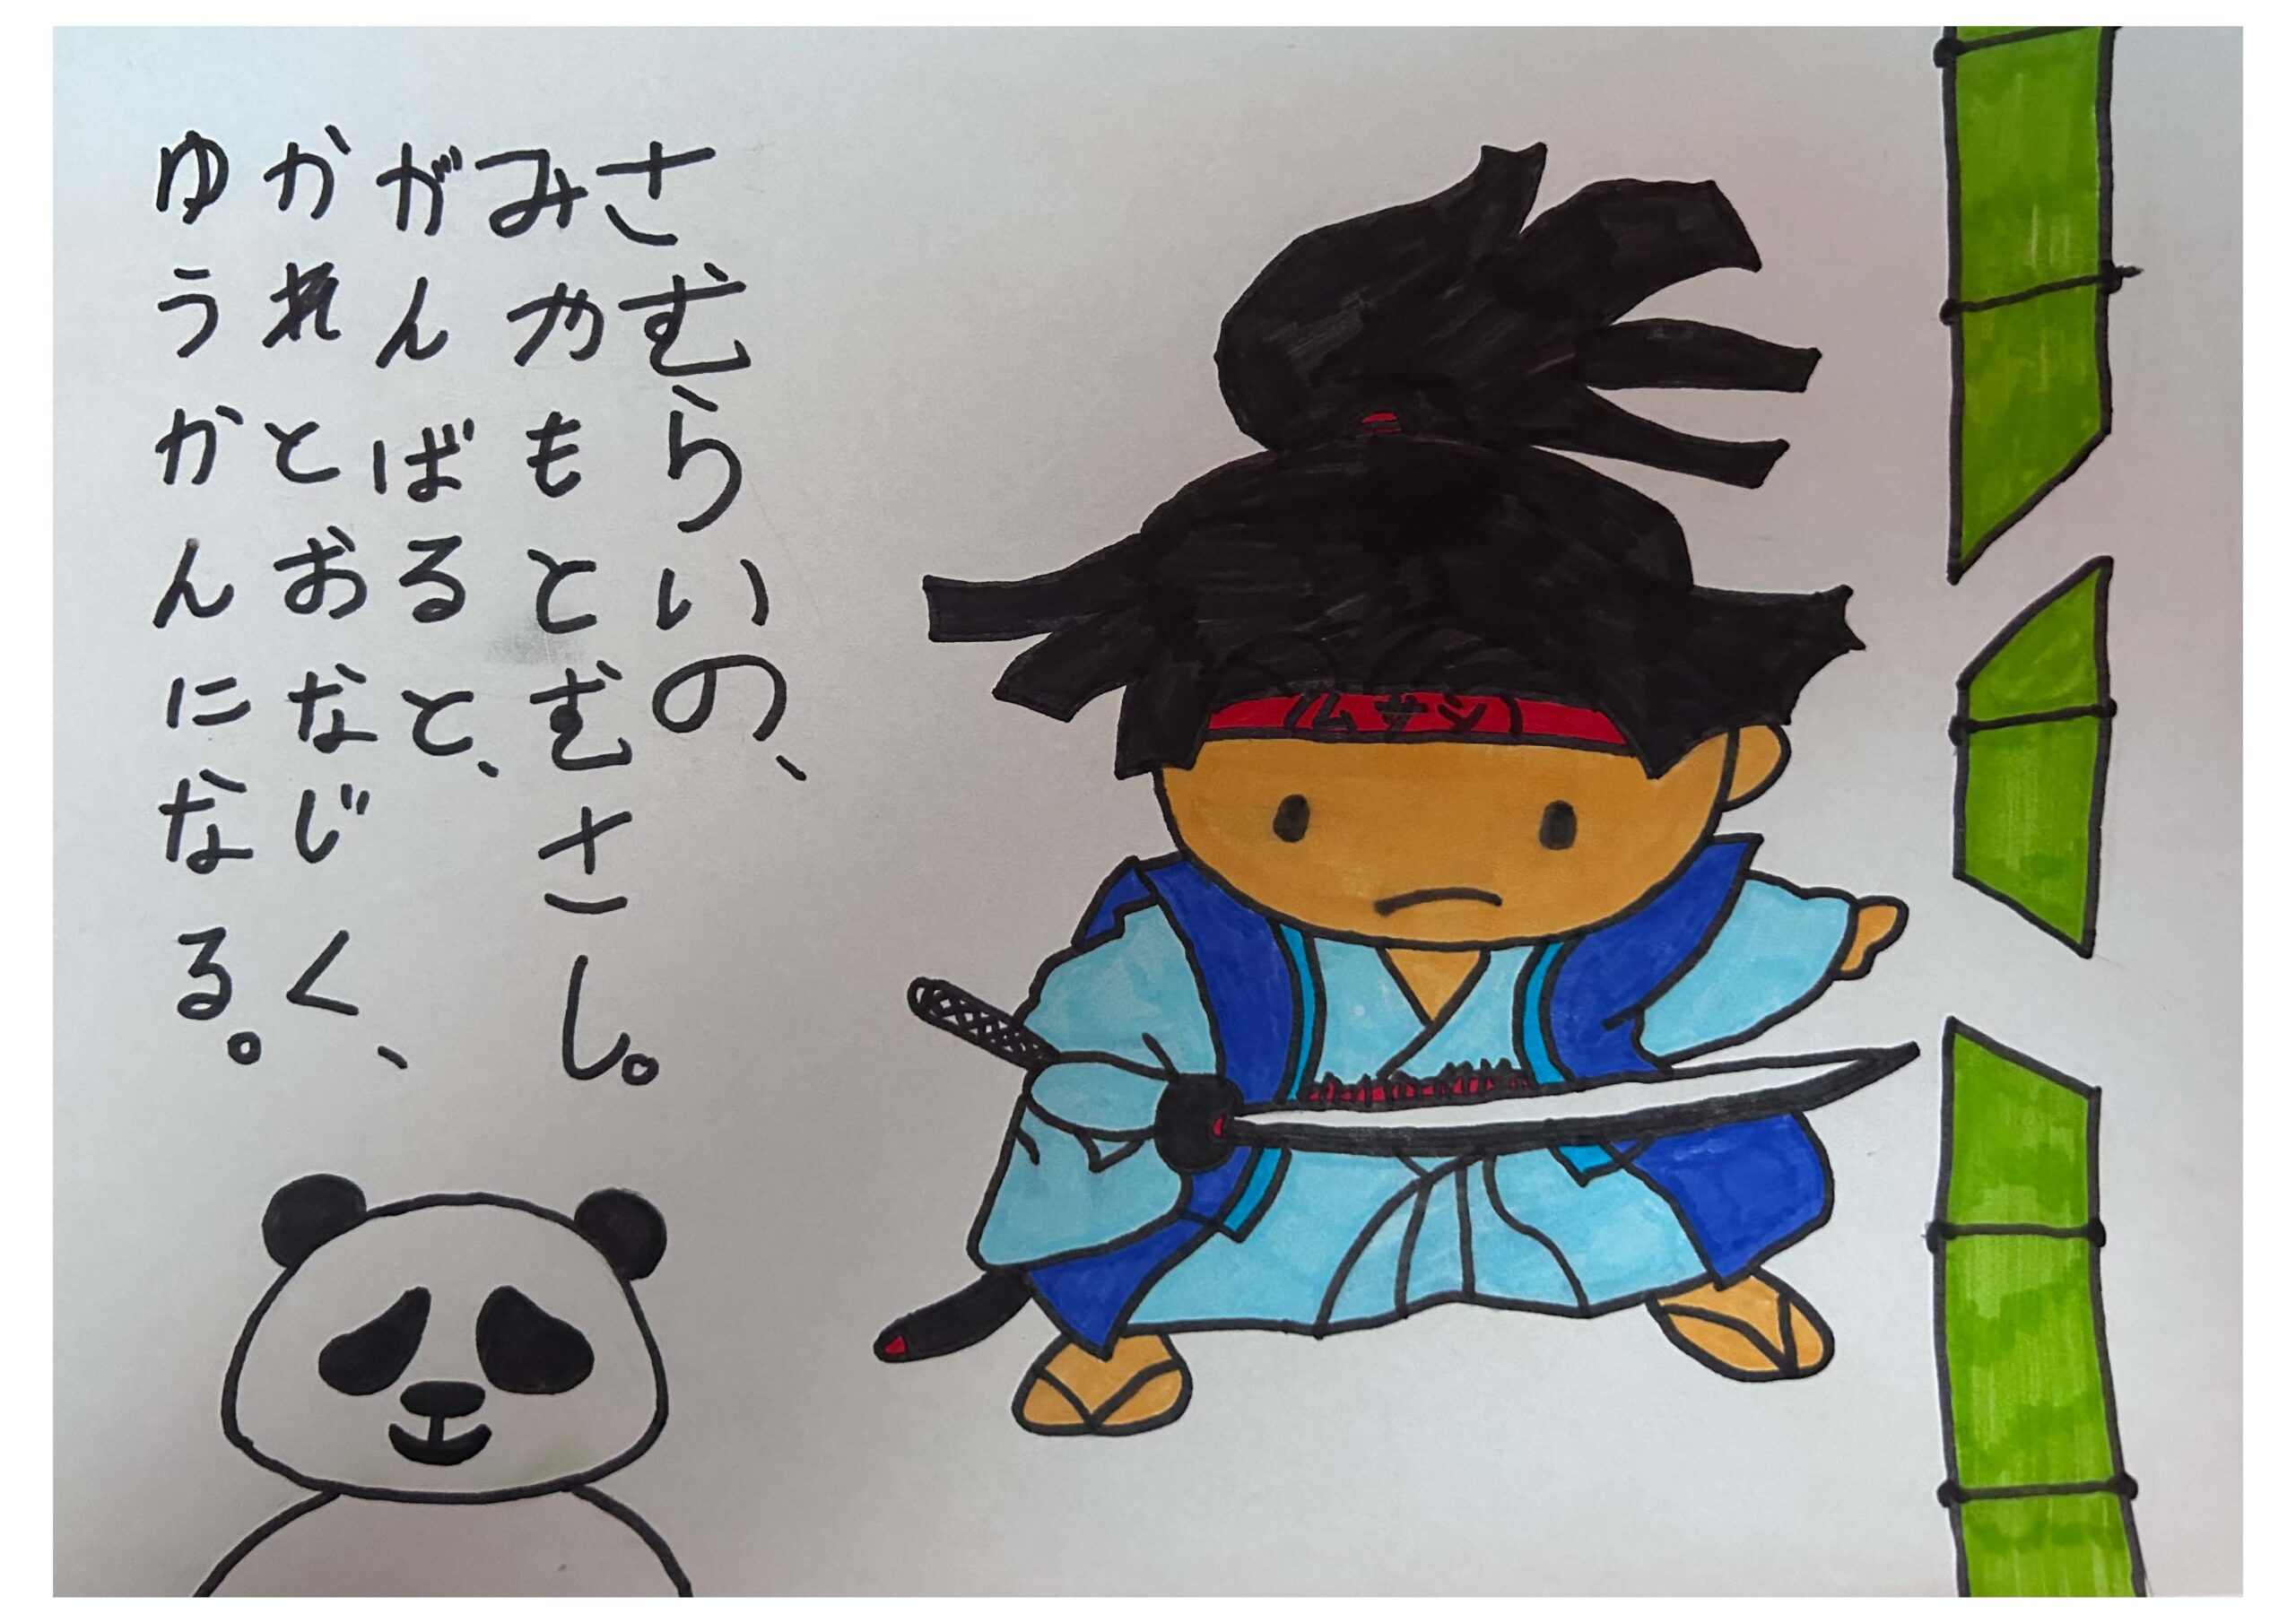 さむらいの、
みやもとむさし。
がんばると、
かれとおなじく、
ゆうかんになる。
(ムサシ)